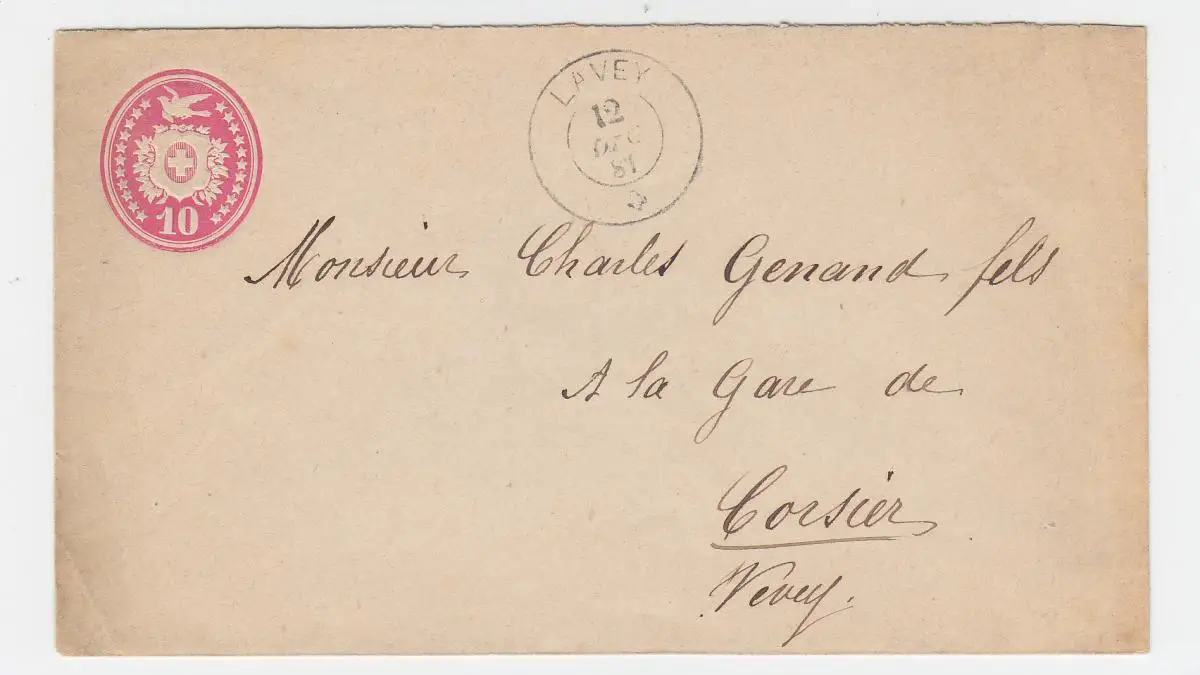 10
LAVEY
12
DEC
81
Monsieur Charles Genand fils
A la Gare de
Corsier
Vevey.